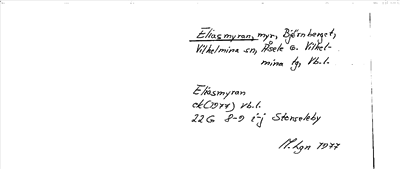 Eliasmyran, myr, Björnberget,
Vilhelmina sn, Åsele o. Vilhel-
mina tg, Vb.l.
Eliasmyran
ek(1977) Vb.l.
22G 8-9 i-j Storseleby
1977